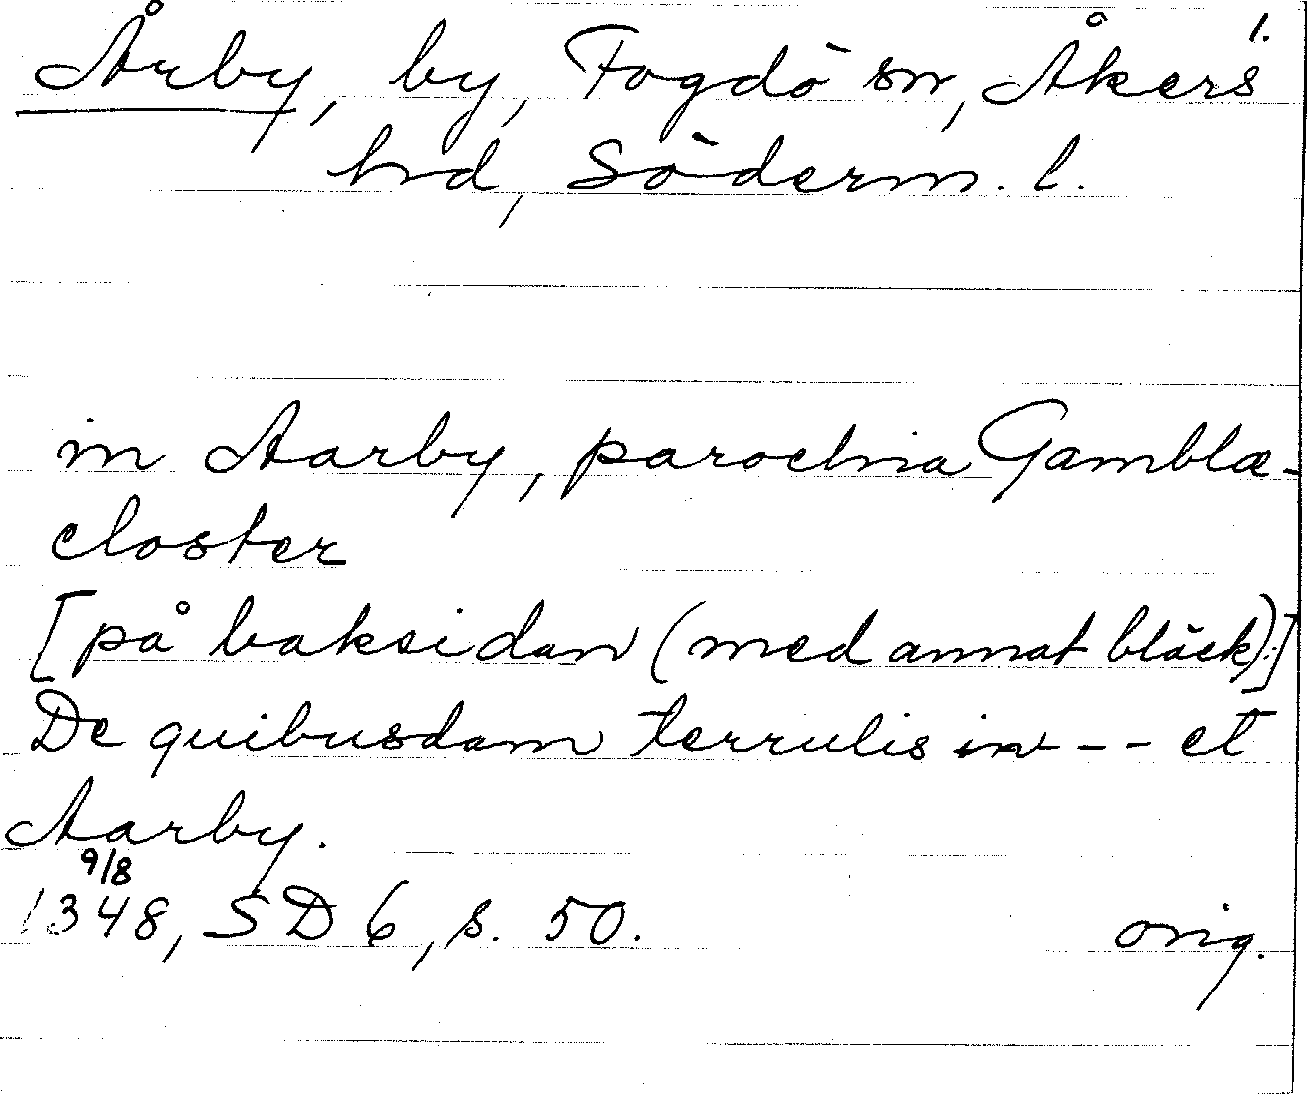 1.
Årby, by, Fogdö sn, Åkers
hrd, Söderm. l.
in Aarby, parochia Gamblæ-
closter
[på baksidan (med annat bläck):]
De quibusdam terrulis in -- et
Aarby.
9/8
1348, SD 6, s. 50. orig.